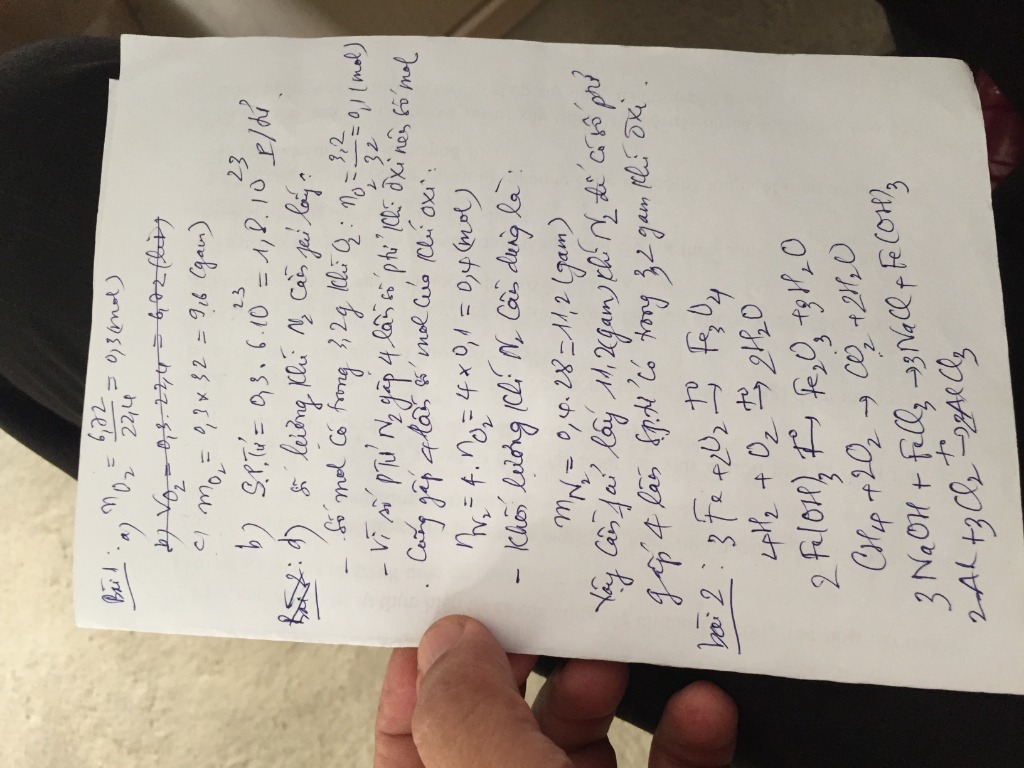 Bài 1: a) nO2 = 6,72/22,4 = 0,3 (mol)
b) VO2 = 0,3. 22,4 = 6,72 (lít)
c) mO2 = 0,3 x 32 = 9,6 (gam)
b) S.P.Tử = 0,3. 6.10^23 = 1,8.10^23 P/tử
Bài 2: d) số lượng khí N2 cần phải lấy:
- Số mol có trong 3,2g khí O2: nO2 = 3,2/32 = 0,1 (mol)
- Vì số PTử N2 gấp 4 lần số ptử khí ôxi nên số mol
cũng gấp 4 lần số mol của khí oxi:
nN2 = 4. nO2 = 4 x 0,1 = 0,4 (mol)
- Khối lượng khí N2 cần dùng là:
mN2 = 0,4. 28 = 11,2 (gam)
Vậy cần fải lấy 11,2 (gam) khí N2 để có số ptử
gấp 4 lần Sptử có trong 3,2 gam khí ôxi.
bài 2: 3 Fe + 2O2 -to-> Fe3O4
4H2 + O2 to-> 2H2O
2 Fe(OH)3 to-> Fe2O3 + 3H2O
CH4 + 2O2 → CO2 + 2H2O
3 NaOH + FeCl3 → 3NaCl + Fe(OH)3
2Al + 3Cl2 -to-> 2AlCl3